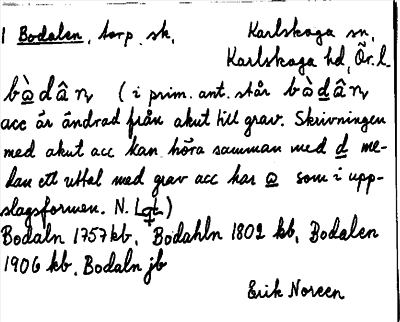 1 Bodalen, torp, sk.   Karlskoga sn,
Karlskoga hd, Ör. l.
bò̲dân (i prim. ant. står bòd̲ân,
acc är ändrad från akut till grav. Skrivningen
med akut acc kan höra samman med d̲ me-
dan ett uttal med grav acc har o̲ som i upp-
slagsformen. N. Lgt.)
Bodaln 1757 kb, Bodahln 1802 kb, Bodalen
1906 kb, Bodaln jb
Erik Noreen